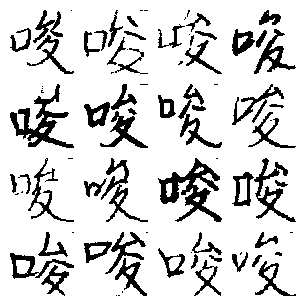 唆唆唆唆
唆唆唆唆
唆唆唆唆
唆唆唆唆